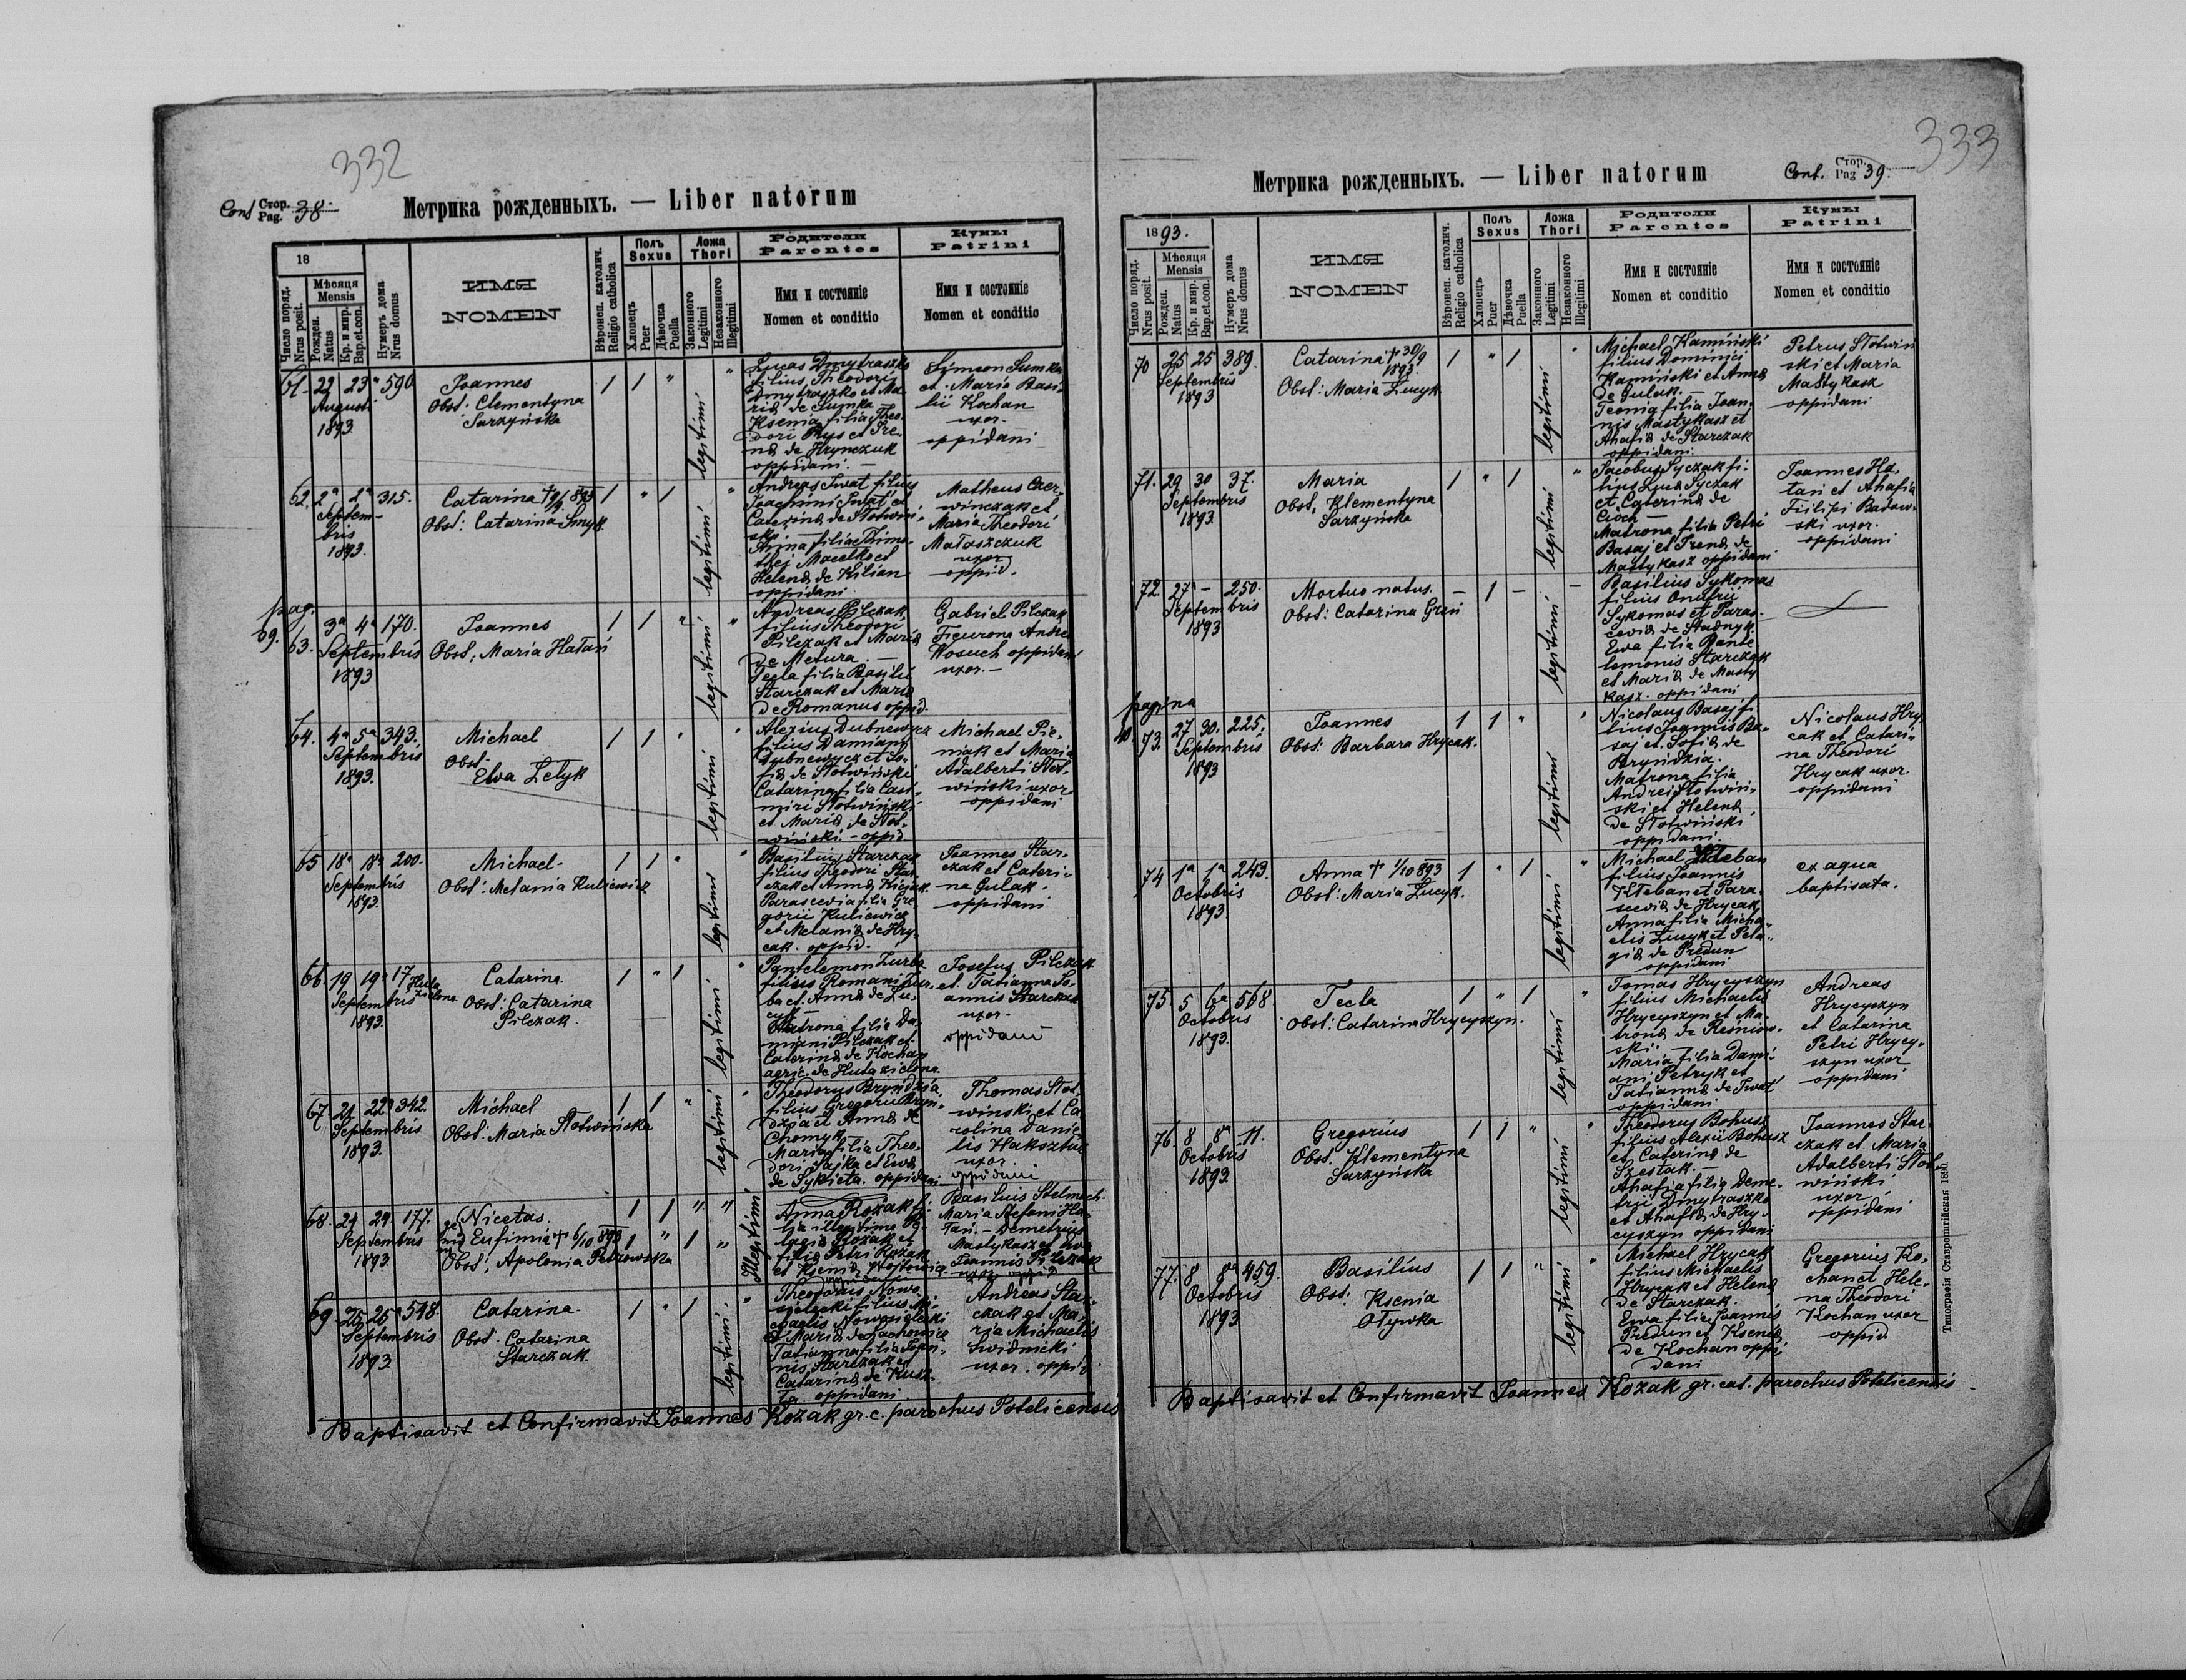 332
Cons Стор. Pag. 38
Метрика рожденныхъ. — Liber natorum
18
Число поряд. Nrus posit.
Мѣсяця Mensis
Рожден. Natus
Кр. и мир. Bap.et.con.
Нумеръ дома Nrus domus
ИМЯ
NOMEN
Вѣроисп. католич. Religio catholica
Полъ Sexus
Хлопець Puer
Дѣвочка Puella
Ложа Thori
Законного Legitimi
Незаконного Illegitimi
Родители Parentes
Имя и состоянiе
Nomen et conditio
Кумы Patrini
Имя и состоянiе
Nomen et conditio
61. 22 23 590
Augusti
1893
Joannes
Obst: Clementyna
Sarzyńska
1 1 "
legitimi
"
Lucas Dmytraszko
filius Theodori
Dmytraszko et Ma-
ria de Sumka
Ksenia filia Theo-
dori Rys et Ire-
na de Hrynczuk
oppidani. —
Symeon Sumka
et Maria Basi-
lii Kochan
uxor.
oppidani
62. 2a 2a 315.
Septem-
bris
1893.
Catarina
Obst: Catarina Smyk
1 " 1
legitimi
"
Andreas Iwat filius
Joachimi Iwat et
Catarina de Słotwiń-
ski
Anna filia Thimo-
thej Macełko et
Helena de Kilian
oppidani.
Matheus Czer-
winczak et
Maria Theodori
Małaszczuk
uxor
oppid.
pag.
39.
63. 3a 4a 170.
Septembris
1893
Joannes
Obst: Maria Hatań
1 1 "
legitimi
"
Andreas Pilczak
filius Theodori
Pilczak et Maria
de Metura. —
Tecla filia Basilii
Starczak et Maria
de Romanus oppid.
Gabriel Pilczak
Andre
Wosuch oppidani
uxor. —
64. 4a 5a 343.
Septembris
1893.
Michael
Obst.
Ewa Zelyk
1 1
legitimi
Alexius Dubnewycz
filius Damiani
Dubnewycz et So-
fia de Słotwiński
Catarina filia Casi-
miri Słotwiński
et Maria de Słot-
wiński – oppid
Michael Pie-
niak et Maria
Adalberti Słot-
wiński uxor
oppidani
65 18a 18a 200.
Septembris
1893.
Michael.
Obst: Melania Kuliewicz
1 1 "
legitimi
"
Basilius Starczak
filius Theodori Star-
czak et Anna Kiciak.
Parascevia filia Gre-
gorii Kuliewicz
et Melania de Hry-
cak. oppid.
Joannes Star-
czak et Cateri-
na Gulak.
oppidani
66. 19 19a 17 Huta zielona
Septembris
1893.
Catarina.
Obst: Catarina
Pilczak.
1 " 1
legitimi
"
Pantelemon Zurba
filius Romani Zur-
ba et Anna de Zu-
cyk —
Matrona filia Da-
miani Pilczak et
Caterina de Kochan
agric. de Huta zielona
Josefus Pilczak
et Tatianna Jo-
annis Starczak
uxor.
oppidani
67. 21 22a 342.
Septembris
1893.
Michael
Obst: Maria Słotwińska
1 1 "
legitimi
"
Theodorus Bryndzia
filius Gregorii Bryn-
dzia et Anna de
Chomyk.
Maria filia Theo-
dori Sajka et Ewa
de Sykieta. oppidani
Thomas Słot-
wiński et Ca-
rolina Danie-
lis Hakoztiu
uxor.
oppidani
68. 24 24 177.
Septembris
1893.
Nicetas
Eufimia + 6/10 893
Obst: Apolonia Petrowska
1 1 " "
1 " 1 "
Illegitimi
Anna Kozak fi-
lia illegitima Pe-
lagia Kozak et
filia Petri Kozak
et Ksenia Wojtowicz
oppidani
Basilius Stelmach
Maria Stefani Ha-
tań. – Demetrius
Mastykasz et Ewa
Joannis Pilczak
uxor oppid
69. 25 25a 598.
Septembris
1893
Catarina.
Obst. Catarina
Starczak.
1 " 1
legitimi
"
Theodorus Nowo-
sielecki filius Mi-
chaelis Nowosielecki
et Maria de Lachowicz
Tatianna filia Joan-
nis Starczak et
Catarina de Kusz-
ła. oppidani
Andreas Star-
czak et Ma-
ria Michaelis
Swidnicki
uxor. oppid.
Baptisavit et Confirmavit Joannes Kozak gr. c. parochus Potelicensis
333
Cont. Стор. Pag 39.
Метрика рожденныхъ. — Liber natorum
1893.
Число поряд. Nrus posit.
Мѣсяця Mensis
Рожден. Natus
Кр. и мир. Bap.et.con.
Нумеръ дома Nrus domus
ИМЯ
NOMEN
Вѣроисп. католич. Religio catholica
Полъ Sexus
Хлопець Puer
Дѣвочка Puella
Ложа Thori
Законного Legitimi
Незаконного Illegitimi
Родители Parentes
Имя и состоянiе
Nomen et conditio
Кумы Patrini
Имя и состоянiе
Nomen et conditio
70 25 25 389.
Septembris
1893
Catarina + 30/9
1893.
Obst: Maria Zucyk
1 " 1
legitimi
"
Michael Kamiński
filius Dominici
Kamiński et Anna
de Gulak. —
Teonia filia Joan-
nis Mastykasz et
Ahafia de Starczak
oppidani.
Petrus Słotwiń
ski et Maria
Mastykasz
oppidani
71. 29 30 37.
Septembris
1893.
Maria
Obst. Klementyna
Sarzyńska
1 " 1
legitimi
"
Jacobus Syczak fi-
lius Luca Syczak
et Caterina de
Cioch —
Matrona filia Petri
Basaj et Irena de
Mastykasz oppidani
Joannes Ha-
tań et Ahafia
Filipi Badow-
ski uxor.
oppidani
72. 27a – 250.
Septembris
1893
Mortuo natus.
Obst: Catarina Greń
– 1 – –
legitimi
Basilius Sykomas
filius Onufrii
Sykomas et Paras-
cevia de Stadnyk.
Ewa filia Pante
lemonis Starczak
et Maria de Masty
kasz. oppidani
pagina
40
73. 27 30. 225.
Septembris
1893
Joannes
Obst: Barbara Hrycak.
1 1 "
legitimi
"
Nicolaus Basaj fi-
lius Joannis Ba-
saj et Sofia de
Bryndzia.
Matrona filia
Andrei Słotwiń-
ski et Helena
de Słotwiński
oppidani.
Nicolaus Hry-
cak et Catari-
na Theodori
Hrycak uxor.
oppidani
74 1a 1a 243.
Octobris
1893
Anna + 1/10 893
Obst: Maria Zucyk.
1 " 1
legitimi
"
Michael Kteban
filius Joannis
Kteban et Para-
scevia de Hrycak
Anna filia Micha-
elis Zucyk et Pela-
gia de Predun
oppidani
ex aqua
baptisata.
75 5 6a 568
Octobris
1893.
Tecla
Obst: Catarina Hrycyszyn.
1 " 1
legitimi
"
Tomas Hrycyszyn
filius Michaelis
Hrycyszyn et Ma-
trona de Reśniow-
ski. —
Maria filia Dami-
ani Petryk et
Tatianna de Iwat
oppidani
Andreas
Hrycyszyn
et Catarina
Petri Hrycy-
szyn uxor
oppidani
76. 8 8a 11.
Octobris
1893.
Gregorius
Obst. Klementyna
Sarzyńska
1 1 "
legitimi
"
Theodorus Bohusz
filius Alexii Bohusz
et Caterina de
Szestak. —
Ahafia filia Deme-
trii Dmytraszko
et Ahafia de Hry-
cyszyn oppidani
Joannes Star-
czak et Maria
Adalberti Słot-
wiński
uxor
oppidani
77. 8 8a 459.
Octobris
1893
Basilius
Obst:
Ksenia
Oływka
1 1 "
legitimi
"
Michael Hrycak
filius Michaelis
Hrycak et Helena
de Starczak.
Ewa filia Joannis
Predun et Ksenia
de Kochan oppi
dani
Gregorius Ko-
chan et Hele-
na Theodori
Kochan uxor
oppid.
Типографія Ставропигійская 1890.
Baptisavit et Confirmavit Joannes Kozak gr. cat. parochus Potelicensis